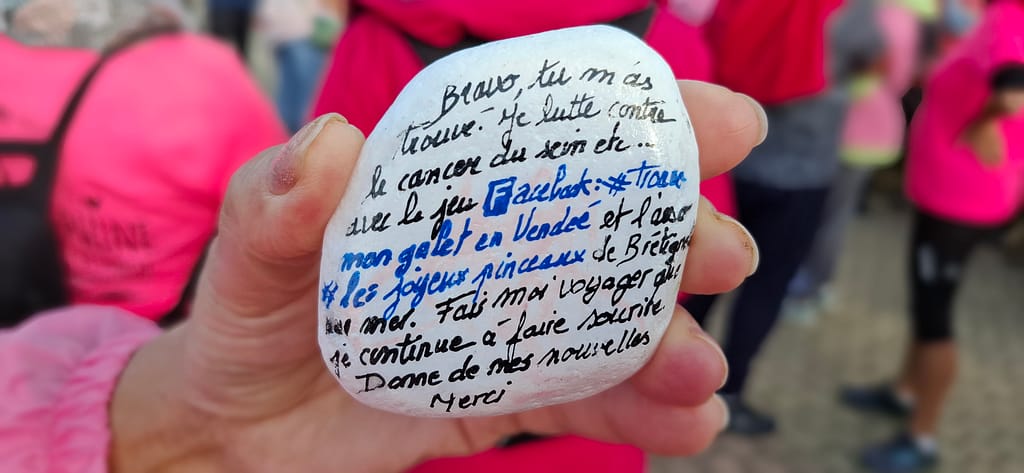 Bravo, tu m'as
trouvé. Je lutte contre
le cancer du sein etc...
avec le jeu Facebook: #Trouve
mon galet en Vendée et l'asso
# les joyeux pinceaux de Bretagne
mer. Fais moi voyager que
je continue à faire sourire
Donne de mes nouvelles
Merci